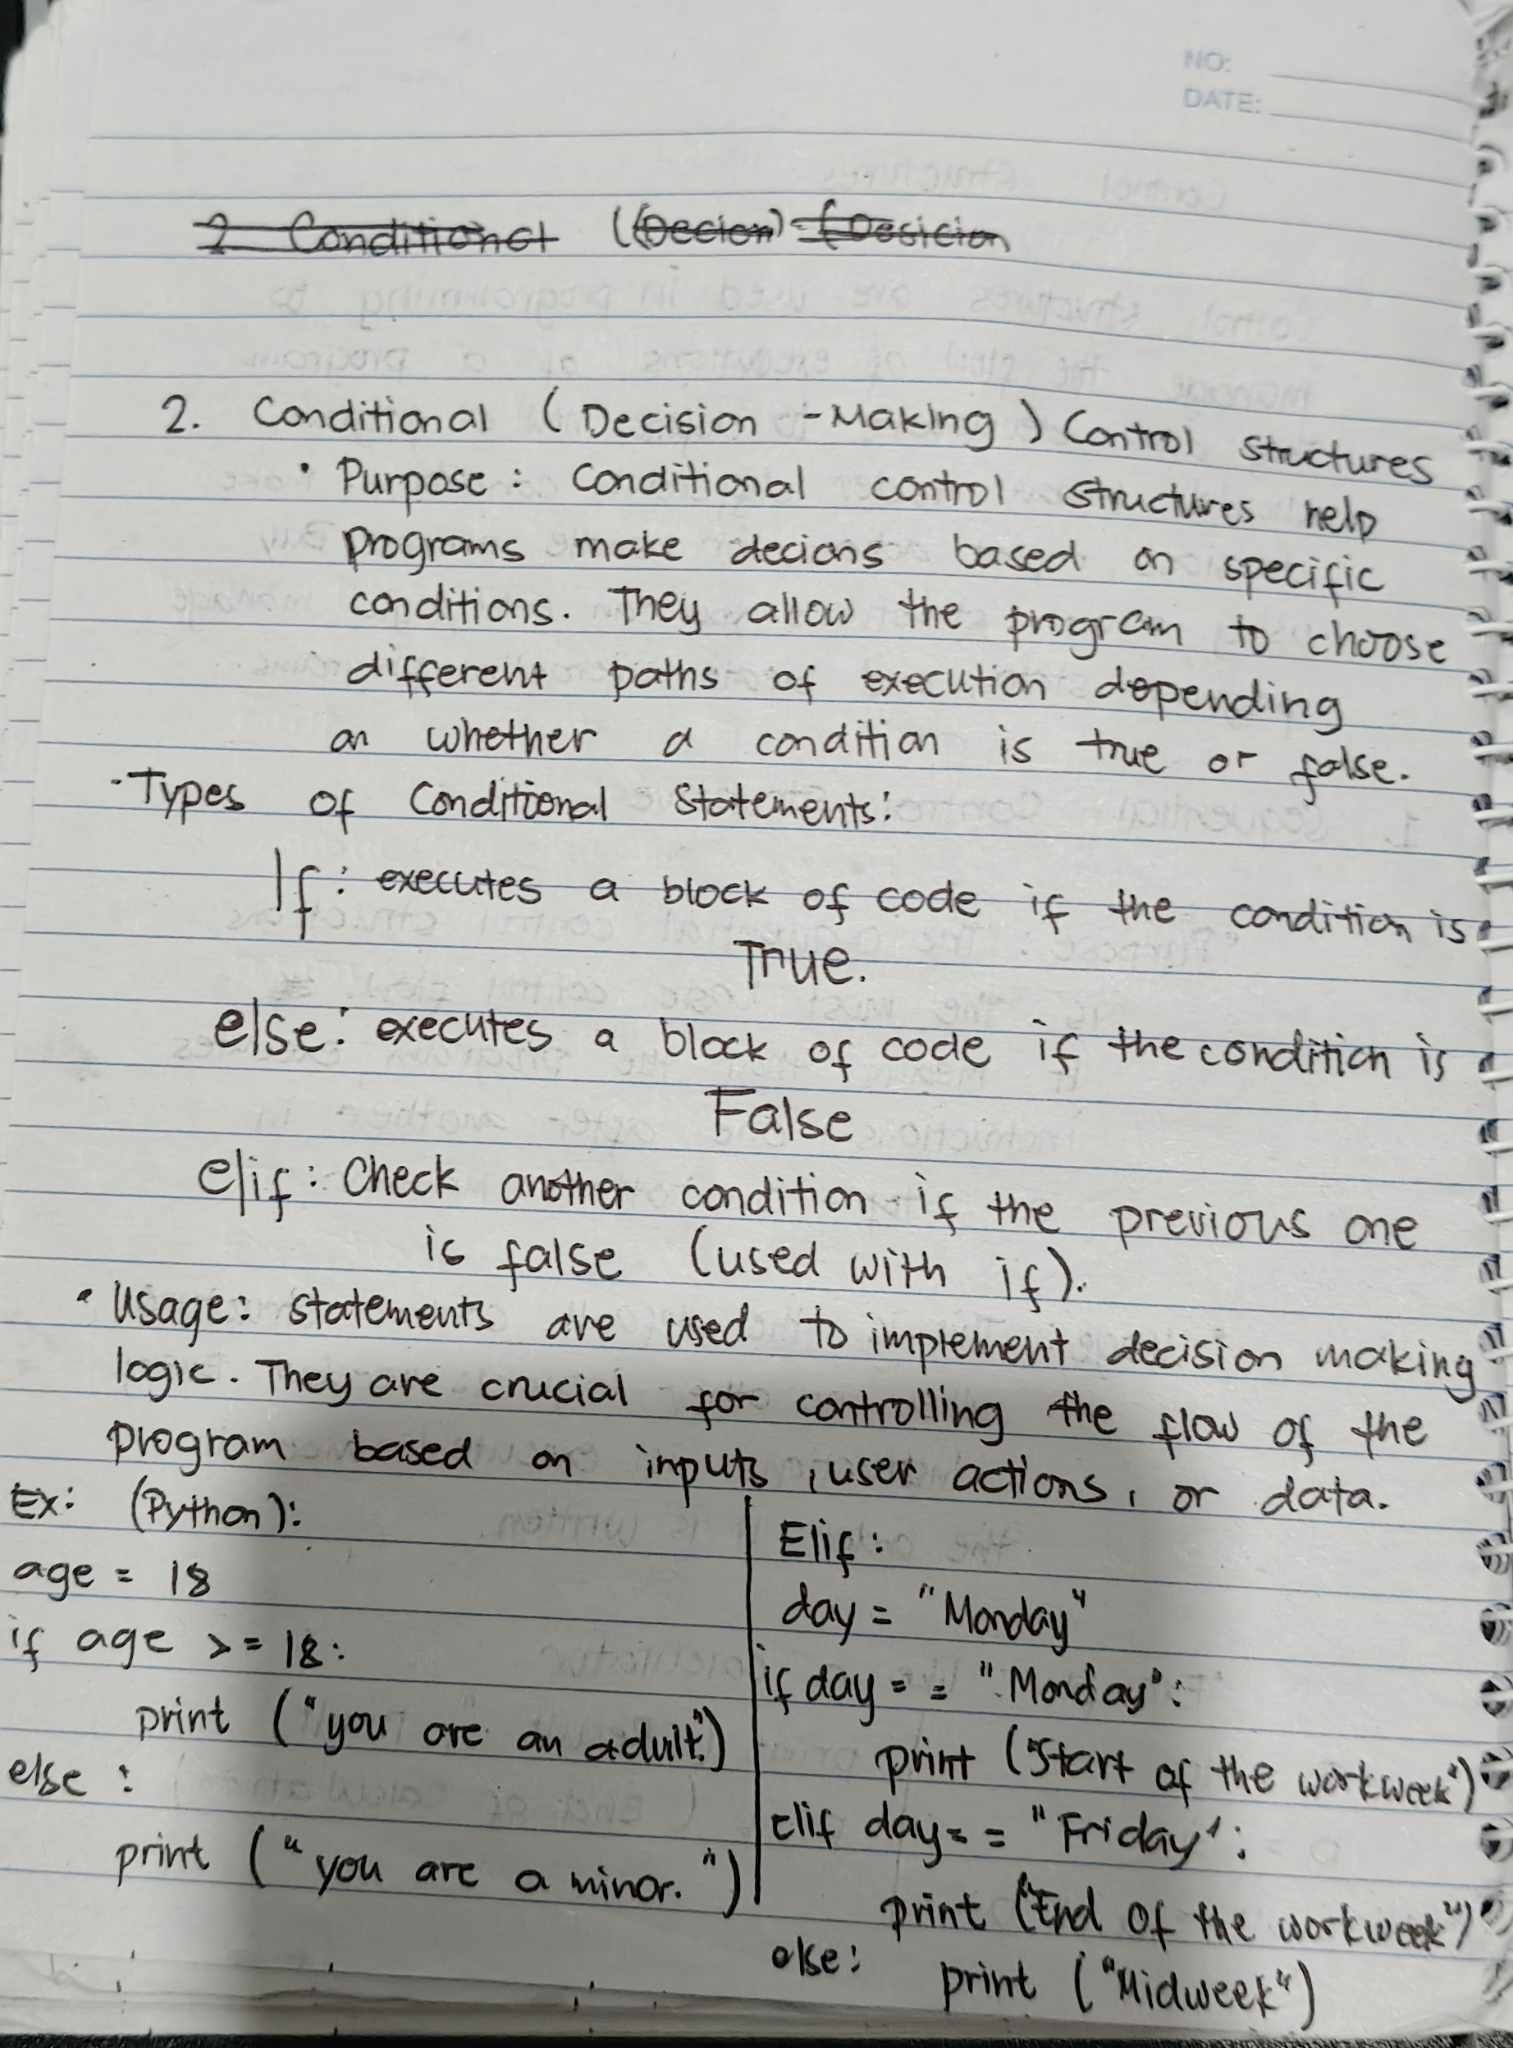 NO:
DATE:
2 Conditional ((Decion) (Desicion
2. Conditional (Decision -Making) Control structures
• Purpose: Conditional control structures help
programs make decions based on specific
conditions. They allow the program to choose
different paths of execution depending
on whether a condition is true or false.
- Types of Conditional Statements:
If: executes a block of code if the condition is
True.
else: executes a block of code if the condition is
False
elif: Check another condition if the previous one
is false (used with if).
• Usage: statements are used to implement decision making
logic. They are crucial for controlling the flow of the
program based on inputs, user actions, or data.
Ex: (Python):
age = 18
if age >= 18:
print ("you are an adult.")
else :
print ("you are a minor.")
Elif:
day = "Monday"
if day = = "Monday":
print ("Start of the workweek")
elif day = = "Friday":
print ("End of the workweek")
else:
print ("Midweek")